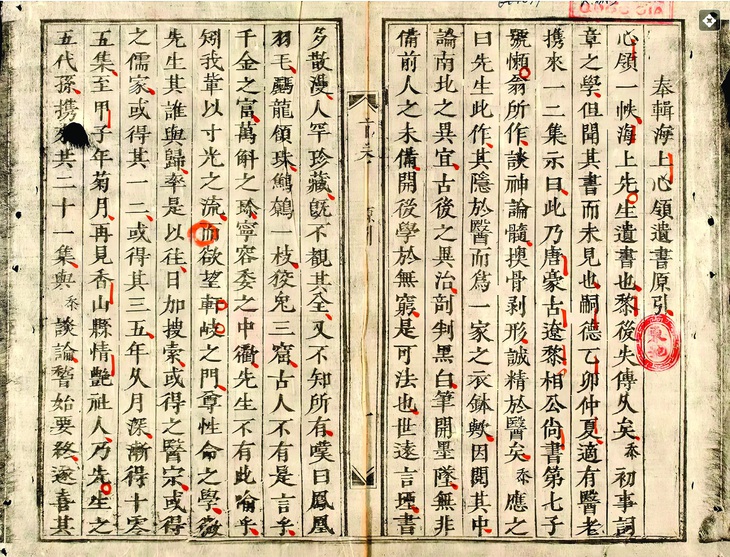 QUOC GIA
奉輯海上心領遺書原引
心領一帙海上先生遺書也黎後失傳久矣忝初事詞
章之學但聞其書而未見也嗣德乙卯仲夏適有醫老
携來一二集示曰此乃唐豪古遼黎相公尚書第七子
號懶翁所作談神論髓換骨剥形誠精於醫矣忝應之
曰先生此作其隱於醫而爲一家之衣鉢歟因閱其中
論南北之異宜古後之異治剖判黑白筆開墨墜無非
備前人之未備開後學於無窮是可法也世遠言堙書
首卷 原引 一
多散漫人罕珍藏旣不觀其全又不知所有嘆曰鳳凰
羽毛驪龍頷珠鷦鷯一枝狡兔三窟古人不有是言乎
千金之富萬斛之珍寧容委之中衢先生不有此喻乎
矧我輩以寸光之流而欲望軒岐之門尊性命之學微
先生其誰與歸率是以往日加搜索或得之醫宗或得
之儒家或得其一二或得其三五年久月深漸得十零
五集至甲子年菊月再見香山縣情艷社人乃先生之
五代孫携來其二十一集與忝談論始要終遂喜其